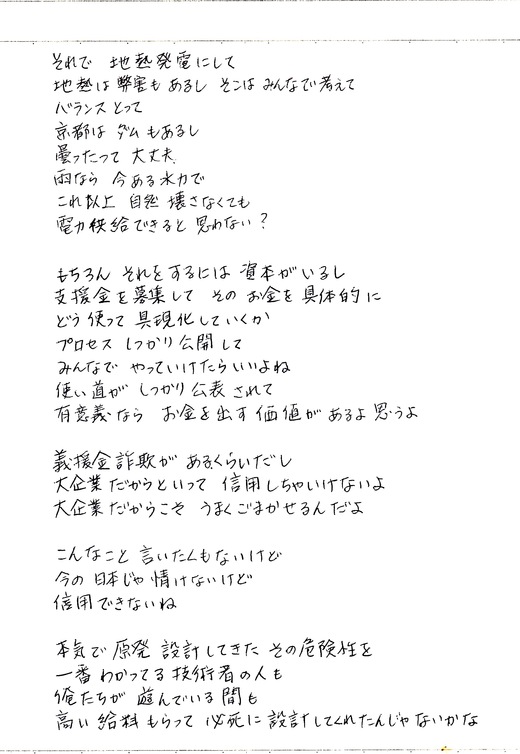 それで 地熱発電にして
地熱は弊害もあるし そこは みんなで考えて
バランスとって
京都は ダムもあるし
曇ったって 大丈夫
雨なら 今ある水力で
これ以上 自然 壊さなくても
電力供給できると 思わない？
もちろん それをするには 資本がいるし
支援金を募集して そのお金を具体的に
どう使って 具現化していくか
プロセス しっかり公開して
みんなで やっていけたらいいよね
使い道が しっかり公表されて
有意義なら お金を出す価値があるよ思うよ
義援金詐欺が あるくらいだし
大企業だからといって 信用しちゃいけないよ
大企業だからこそ うまくごまかせるんだよ
こんなこと 言いたくもないけど
今の日本じゃ 情けないけど
信用できないね
本気で 原発 設計してきた その危険性を
一番わかってる技術者の人も
俺たちが 遊んでいる間も
高い給料もらって 必死に設計してくれたんじゃないかな